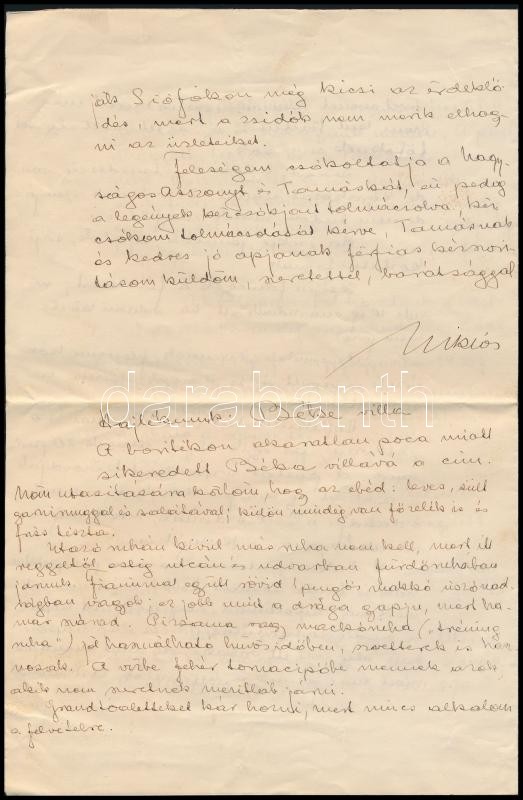 ják Siófokon még kicsi az érdeklő
dés, mert a zsidók nem merik elhagy-
ni az üzleteiket.
Feleségem csókoltatja a Nagy-
ságos Asszonyt és Tamáskát, én pedig
a legények kézcsókjait tolmácsolva, kéz-
csókom tolmácsolását kérve, Tamásnak
és kedves jó apjának férfias kézszorí-
tásom küldöm, szeretettel, barátsággal
Miklós
darabanth
Hajlékunk: Béke villa
A borítékon akaratlan paca miatt
sikeredett Béka villává a cím.
Nóm utasítására közlöm, hogy az ebéd: leves, sült
garnirunggal és salátával; külön mindig van főzelék is és
friss tészta.
Utazó ruhán kívül más ruha nem kell, mert itt
reggeltől estig utcán és udvarban fürdőruhában
járunk. Frammal együtt rövid 1 pengős makkó úszónad-
rágban vagyok: ez jobb mint a drága gapju, mert ha-
mar szárad. Pizsama vagy mackóruha ("tréning
ruha") jól használható hűvös időben, swetterek is hasz
nosak. A vízbe fehér tornacipőbe mennek azok
akik nem szeretnek mezítláb járni.
Grandtoaletteket kár hozni, mert nincs alkalom
a felvételre.